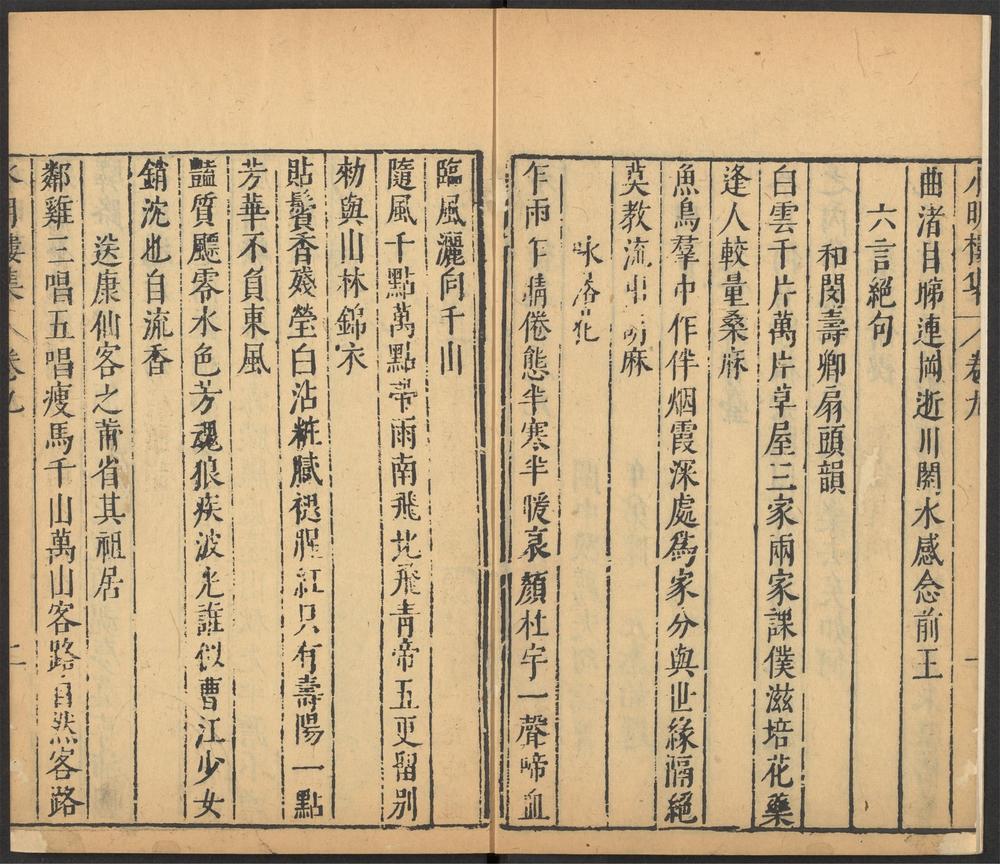 曲渚目睇連岡逝川閱水感念前王
六言絕句
和閔壽卿扇頭韻
白雲千片萬片草屋三家兩家課僕滋培花藥
逢人較量桑麻
魚鳥羣中作伴烟霞深處爲家分與世緣隔絕
莫教流出胡麻
咏落花
乍雨乍晴倦態半寒半暖哀顏杜宇一聲啼血
臨風灑向千山
隨風千點萬點帶雨南飛北飛青帝五更留別
勑與山林錦衣
貼鬢香殘瑩白沾粧膩褪腥紅只有壽陽一點
芳華不負東風
豔質飄零水色芳魂狼疾波光誰似曹江少女
銷沈也自流香
送康仙客之莆省其祖居
鄰雞三唱五唱瘦馬千山萬山客路自然客路
水明樓集 卷九 二